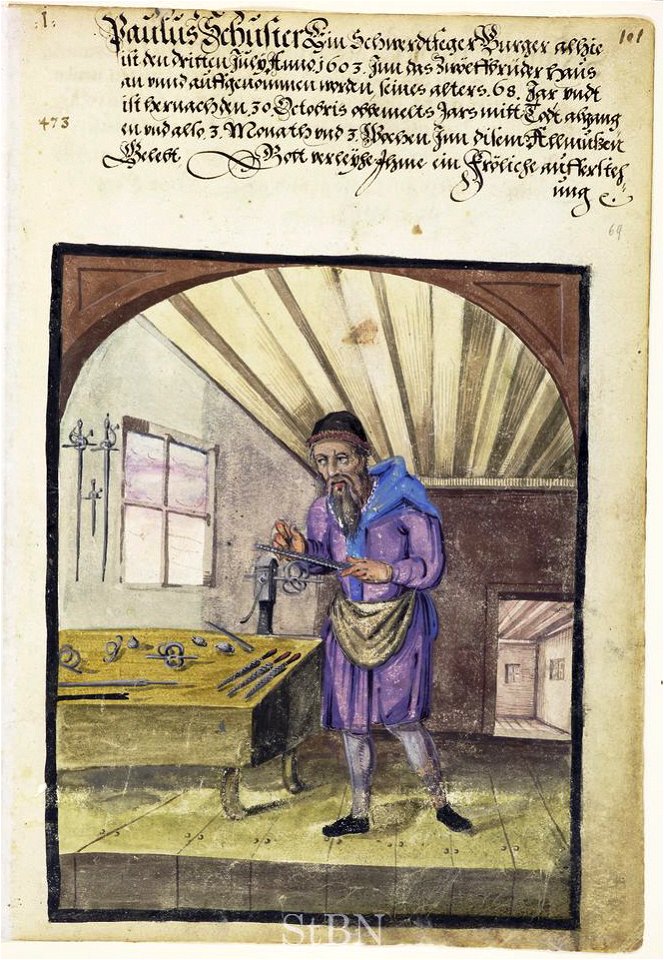 1.
101
Paulus Schuster Ein Schwerdtfeger Burger alhie
ist den dritten July Anno 1603. Inn das Zwölfbrüder Haus
an vnnd auffgenommen worden seines alters. 68. Jar vndt
ist hernach den. 30. Octobris obbemelts Jars mitt Todt abgang
en vnd also 3. Monath vnd 3. Wochen Inn disem Allmußen
Gelebt Gott verleyhe Ihme ein Fröliche auffersteh
ung
473
69
StBN